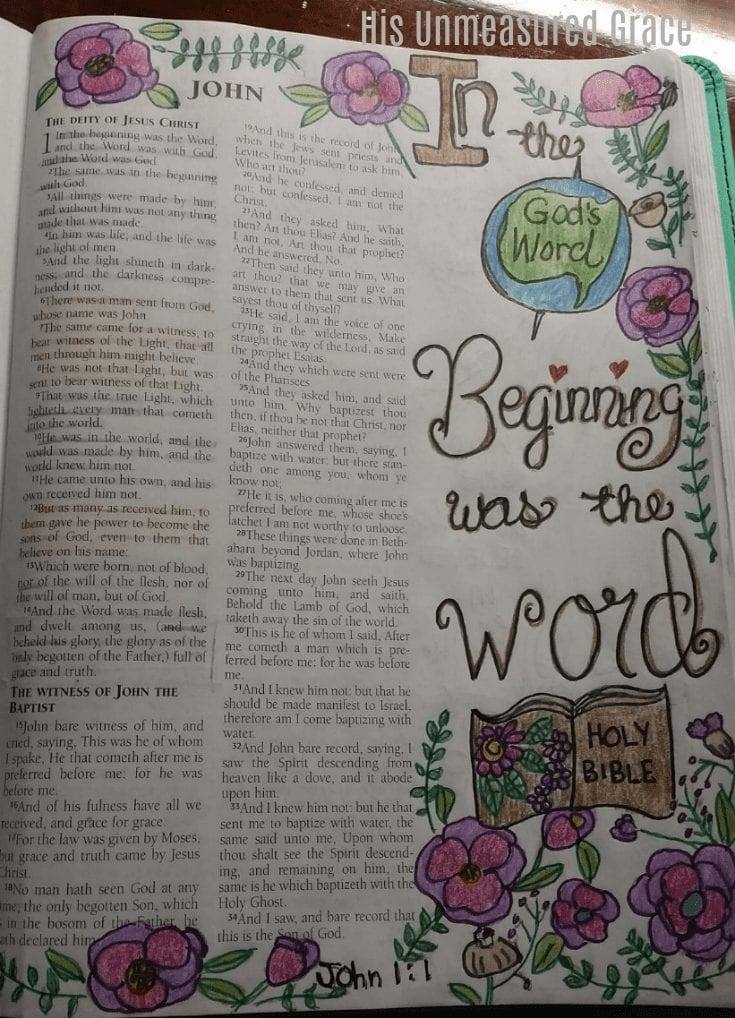 His Unmeasured Grace
JOHN
THE DEITY OF JESUS CHRIST
1 In the beginning was the Word,
and the Word was with God,
and the Word was God.
2The same was in the beginning
with God.
3All things were made by him;
and without him was not any thing
made that was made.
4In him was life; and the life was
the light of men.
5And the light shineth in dark-
ness; and the darkness compre-
hended it not.
6There was a man sent from God,
whose name was John.
7The same came for a witness, to
bear witness of the Light, that all
men through him might believe.
8He was not that Light, but was
sent to bear witness of that Light.
9That was the true Light, which
lighteth every man that cometh
into the world.
10He was in the world, and the
world was made by him, and the
world knew him not.
11He came unto his own, and his
own received him not.
12But as many as received him, to
them gave he power to become the
sons of God, even to them that
believe on his name:
13Which were born, not of blood,
nor of the will of the flesh, nor of
the will of man, but of God.
14And the Word was made flesh,
and dwelt among us, (and we
beheld his glory, the glory as of the
only begotten of the Father,) full of
grace and truth.
THE WITNESS OF JOHN THE
BAPTIST
15John bare witness of him, and
cried, saying, This was he of whom
I spake, He that cometh after me is
preferred before me: for he was
before me.
16And of his fulness have all we
received, and grace for grace.
17For the law was given by Moses,
but grace and truth came by Jesus
Christ.
18No man hath seen God at any
time; the only begotten Son, which
is in the bosom of the Father, he
hath declared him
19And this is the record of John,
when the Jews sent priests and
Levites from Jerusalem to ask him,
Who art thou?
20And he confessed, and denied
not; but confessed, I am not the
Christ.
21And they asked him, What
then? Art thou Elias? And he saith,
I am not. Art thou that prophet?
And he answered, No.
22Then said they unto him, Who
art thou? that we may give an
answer to them that sent us. What
sayest thou of thyself?
23He said, I am the voice of one
crying in the wilderness, Make
straight the way of the Lord, as said
the prophet Esaias.
24And they which were sent were
of the Pharisees.
25And they asked him, and said
unto him, Why baptizest thou
then, if thou be not that Christ, nor
Elias, neither that prophet?
26John answered them, saying, I
baptize with water: but there stan-
deth one among you, whom ye
know not;
27He it is, who coming after me is
preferred before me, whose shoe's
latchet I am not worthy to unloose.
28These things were done in Beth-
abara beyond Jordan, where John
was baptizing.
29The next day John seeth Jesus
coming unto him, and saith,
Behold the Lamb of God, which
taketh away the sin of the world.
30This is he of whom I said, After
me cometh a man which is pre-
ferred before me: for he was before
me.
31And I knew him not: but that he
should be made manifest to Israel,
therefore am I come baptizing with
water.
32And John bare record, saying, I
saw the Spirit descending from
heaven like a dove, and it abode
upon him.
33And I knew him not: but he that
sent me to baptize with water, the
same said unto me, Upon whom
thou shalt see the Spirit descend-
ing, and remaining on him, the
same is he which baptizeth with the
Holy Ghost.
34And I saw, and bare record that
this is the Son of God.
In
the
God's
Word
Beginning
was the
word
HOLY
BIBLE
John 1:1